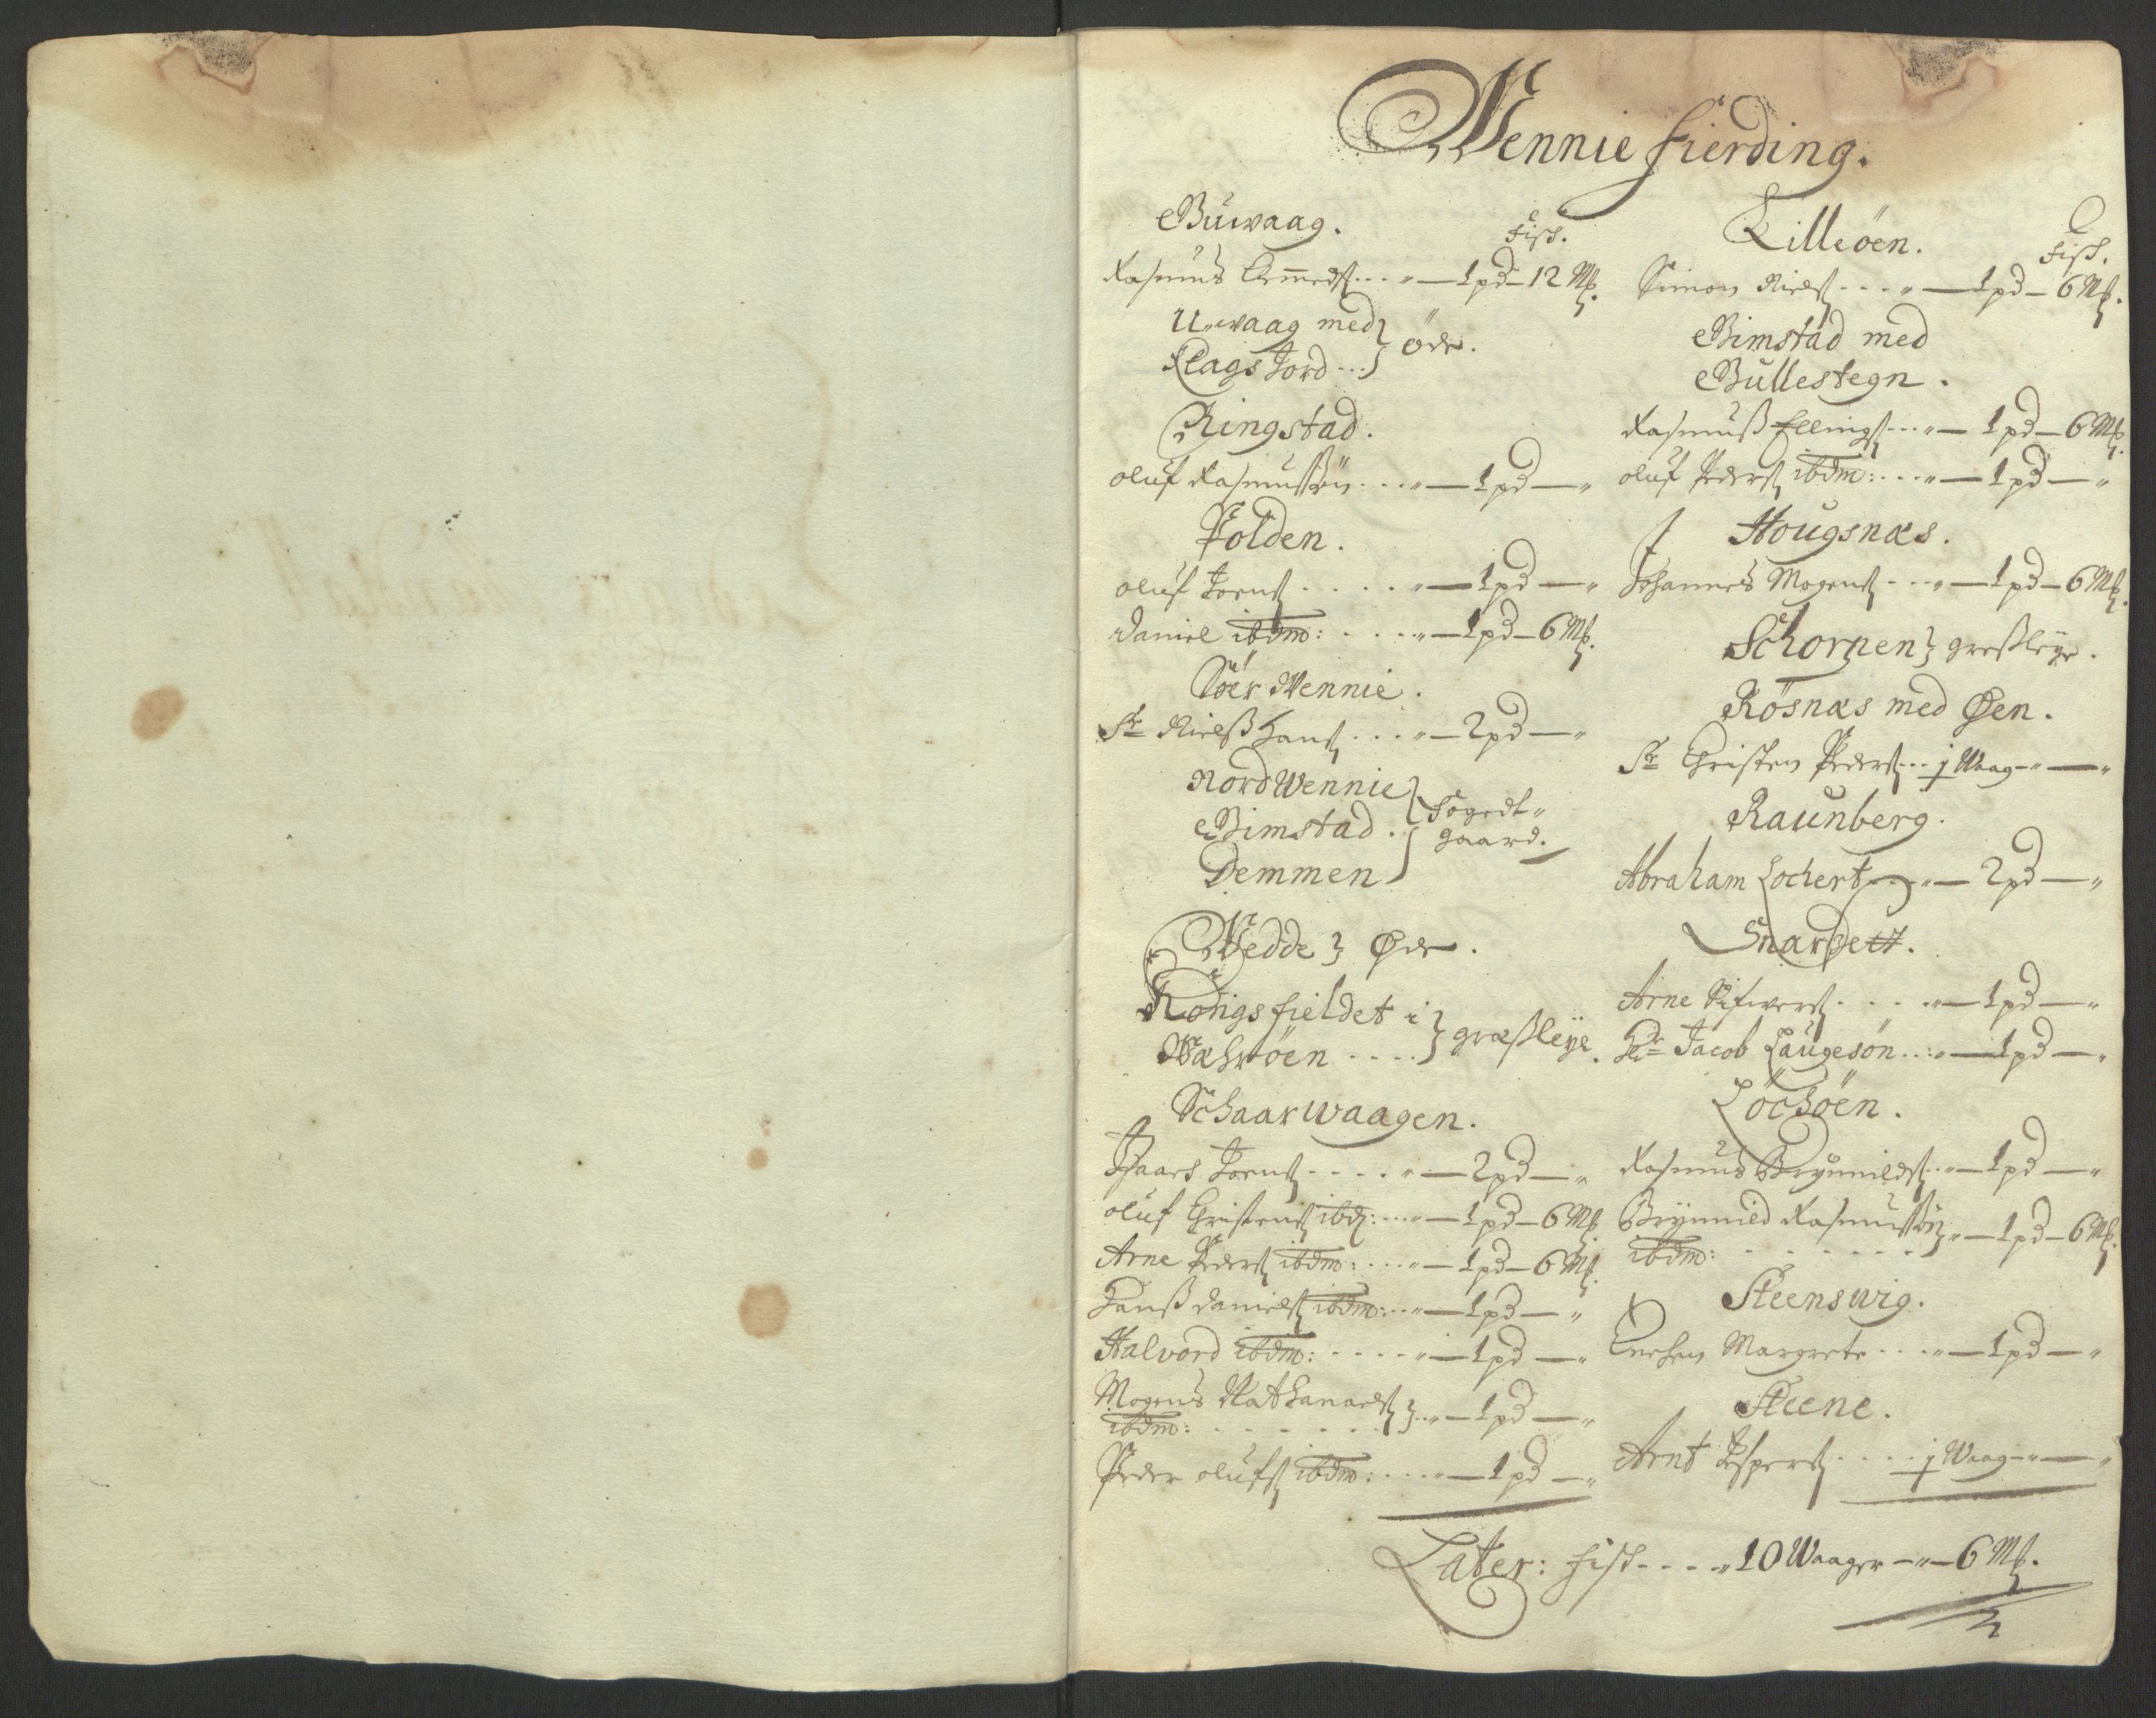 Wennie fierding.
Buwaag.
fisch.
Rasmus Amundß: . . . „ — 1 pd — 12 Mk.
Uwaag med
Klags Jord . . . } öde.
Ringstad.
oluf Rasmussön . . . „ — 1 pd — „
Folden.
oluf Joenß . . . . . „ — 1 pd — „
Daniel ibdm: . . . . „ — 1 pd — 6 Mk.
Söer Wennie.
Sr Nielß Hanß . . . „ — 2 pd — „
Nord Wennie
Bimstad . } fogedt„
gaard.
Demmen
Wedde } Øde.
Kongsfieldet i
Walsöen . . . . } græßleye.
Schaarwaagen.
Isaach Joenß . . . . . „ — 2 pd — „
oluf Christenß ibd: . . . „ — 1 pd — 6 Mk.
Arne Pederß ibdm: . . . „ — 1 pd — 6 Mk.
Hanß Danielß ibdm: . . „ — 1 pd — „
Halvord ibdm: . . . . „ — 1 pd — „
Mogens Nathanaelß
ibdm: . . . . . . } . . „ — 1 pd — „
Peder olufß ibdm: . . . . „ — 1 pd — „
Lilleöen.
fisch.
Simon Nielß . . . „ — 1 pd — 6 Mk.
Bimstad med
Bullestegn.
Rasmuß Ellingß . . . „ — 1 pd — 6 Mk
oluf Pederß ibdm: . . . „ — 1 pd — „
Hougsnæs.
Johannes Mogenß . . . „ — 1 pd — 6 Mk.
Schorpen } græßleye.
Rösnæs med Øen.
Sr Christen Pederß . . . j Waag — „ — „
Raunberg.
Abraham Lochert . . . „ — 2 pd — „
Snarsett.
Arne Sifwerß . . . . „ — 1 pd — „
Hr Jacob Laugesön . . : „ — 1 pd — „
Löchöen.
Rasmus Brynnildß . . „ — 1 pd — „
Brynnild Rasmussön
ibdm: . . . . . . } „ — 1 pd — 6 Mk.
Steenswig.
Encken Margrete . . . „ — 1 pd — „
Steene.
Arnt Jesperß . . . . j Waag — „ — „
Later: fisch . . . . „ 10 Waager — „ — 6 Mk.